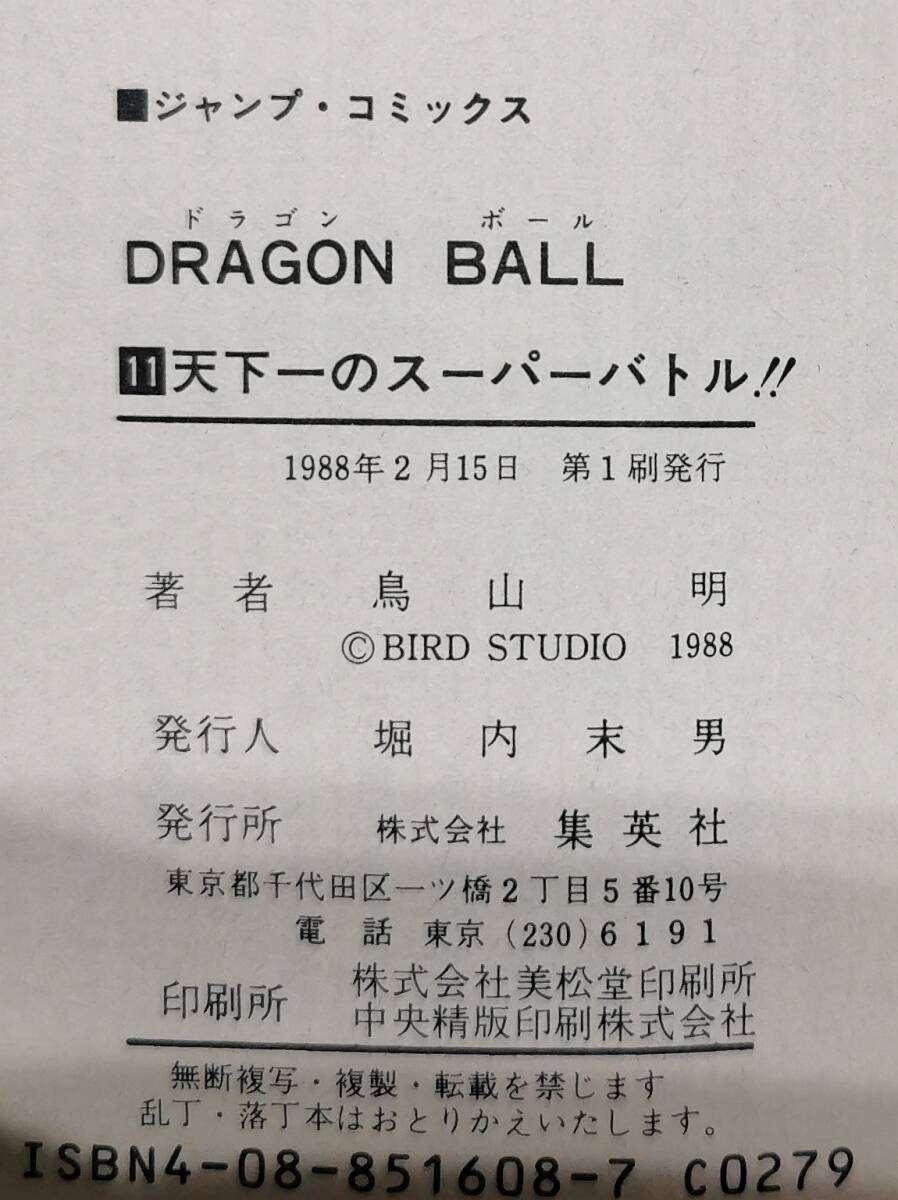 ■ジャンプ・コミックス
ドラゴン ボール
DRAGON BALL
11天下一のスーパーバトル!!
1988年2月15日 第1刷発行
著者 鳥山明
©BIRD STUDIO 1988
発行人 堀内末男
発行所 株式会社 集英社
東京都千代田区一ツ橋2丁目5番10号
電話 東京(230)6191
印刷所 株式会社美松堂印刷所
中央精版印刷株式会社
無断複写・複製・転載を禁じます
乱丁・落丁本はおとりかえいたします。
ISBN4-08-851608-7 C0279